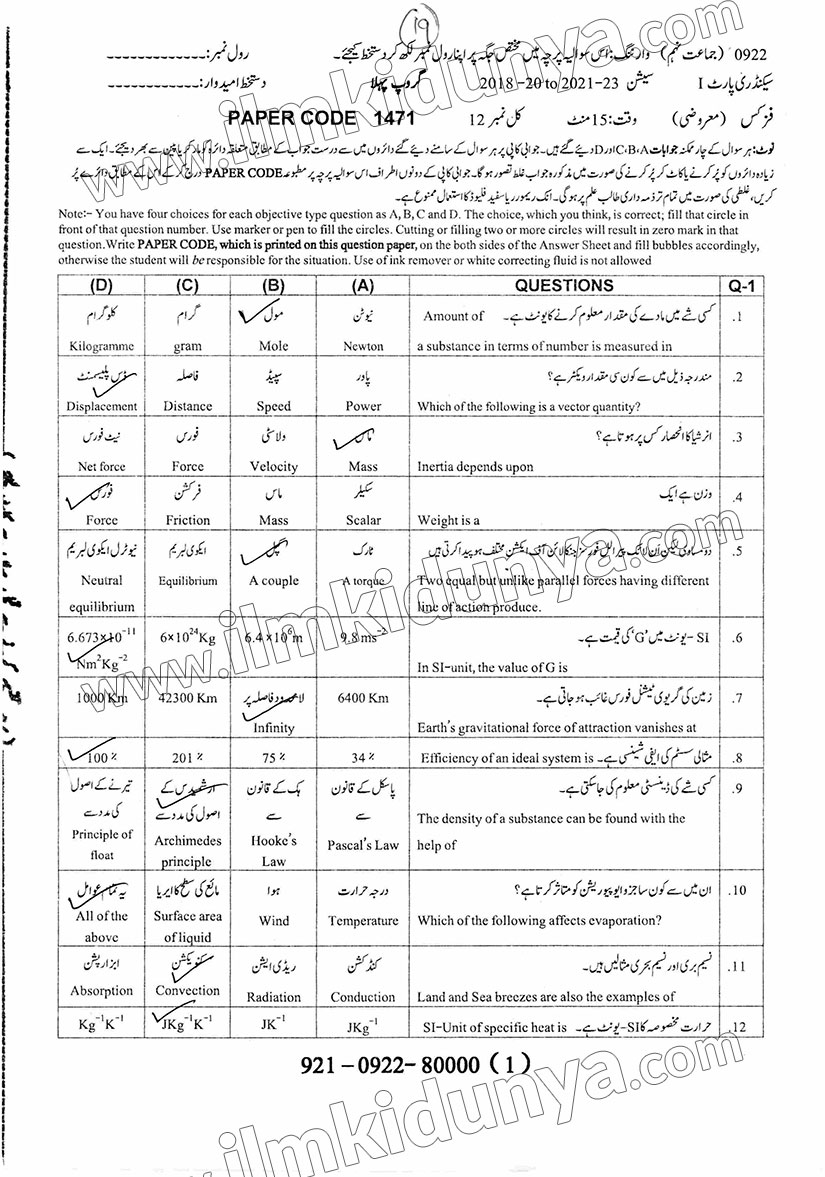 19
0922 (جماعت نہم) وارننگ: اس سوالیہ پرچہ میں مختص جگہ پر اپنا رول نمبر لکھ کر دستخط کیجئے۔ رول نمبر: -------------
سیکنڈری پارٹ I سیشن 2018-20 to 2021-23 گروپ پہلا دستخط امیدوار: ------------
فزکس (معروضی) وقت: 15 منٹ کل نمبر 12 PAPER CODE 1471
نوٹ: ہر سوال کے چار ممکنہ جوابات C،B،A اور D دیئے گئے ہیں۔ جوابی کاپی پر ہر سوال کے سامنے دیئے گئے دائروں میں سے درست جواب کے مطابق متعلقہ دائرہ کو مارکر یا پین سے بھر دیجئے۔ ایک سے
زیادہ دائروں کو پُر کرنے یا کاٹ کر پُر کرنے کی صورت میں مذکورہ جواب غلط تصور ہوگا۔ جوابی کاپی کے دونوں اطراف اس سوالیہ پرچہ پر مطبوعہ PAPER CODE درج کر کے اس کے مطابق دائرے پُر
کریں، غلطی کی صورت میں تمام تر ذمہ داری طالب علم پر ہوگی۔ انک ریموور یا سفید فلیوڈ کا استعمال ممنوع ہے۔
Note:- You have four choices for each objective type question as A, B, C and D. The choice, which you think, is correct; fill that circle in
front of that question number. Use marker or pen to fill the circles. Cutting or filling two or more circles will result in zero mark in that
question. Write PAPER CODE, which is printed on this question paper, on the both sides of the Answer Sheet and fill bubbles accordingly,
otherwise the student will be responsible for the situation. Use of ink remover or white correcting fluid is not allowed
(D) (C) (B) (A) QUESTIONS Q-1
کلوگرام گرام مول نیوٹن Amount of کسی شے میں مادے کی مقدار معلوم کرنے کا یونٹ ہے۔ .1
Kilogramme gram Mole Newton a substance in terms of number is measured in
ڈس پلیسمنٹ فاصلہ سپیڈ پاور مندرجہ ذیل میں سے کون سی مقدار ویکٹر ہے؟ .2
Displacement Distance Speed Power Which of the following is a vector quantity?
نیٹ فورس فورس ولاسٹی ماس انرشیا کا انحصار کس پر ہوتا ہے؟ .3
Net force Force Velocity Mass Inertia depends upon
فورس فرکشن ماس سکیلر وزن ہے ایک .4
Force Friction Mass Scalar Weight is a
نیوٹرل ایکوی لبریم ایکوی لبریم کپل ٹارک دو مساوی لیکن اَن لائک پیرالل فورسز جنکا لائن آف ایکشن مختلف ہو پیدا کرتی ہیں .5
Neutral Equilibrium A couple A torque Two equal but unlike parallel forces having different
equilibrium line of action produce.
6.673×10⁻¹¹ 6×10²⁴Kg 6.4×10⁶m 9.8ms⁻² SI- یونٹ میں 'G' کی قیمت ہے۔ .6
Nm²Kg⁻² In SI-unit, the value of G is
1000 Km 42300 Km لامحدود فاصلہ پر 6400 Km زمین کی گریوی ٹیشنل فورس غائب ہو جاتی ہے۔ .7
Infinity Earth's gravitational force of attraction vanishes at
100 % 201 % 75 % 34 % Efficiency of an ideal system is مثالی سسٹم کی ایفی شینسی ہے۔ .8
تیرنے کے اصول ارشمیدس کے ہک کے قانون پاسکل کے قانون کسی شے کی ڈینسٹی معلوم کی جاسکتی ہے۔ .9
کی مدد سے اصول کی مدد سے سے سے
Principle of Archimedes Hooke's Pascal's Law The density of a substance can be found with the
float principle Law help of
یہ تمام عوامل مائع کی سطح کا ایریا ہوا درجہ حرارت ان میں سے کون سا جزو ایوپوریشن کو متاثر کرتا ہے؟ .10
All of the Surface area Wind Temperature Which of the following affects evaporation?
above of liquid
ابزارپشن کنویکشن ریڈی ایشن کنڈکشن نسیم بری اور نسیم بحری مثالیں ہیں۔ .11
Absorption Convection Radiation Conduction Land and Sea breezes are also the examples of
Kg⁻¹K⁻¹ JKg⁻¹K⁻¹ JK⁻¹ JKg⁻¹ SI-Unit of specific heat is حرارت مخصوصہ کا SI- یونٹ ہے۔ .12
921-0922-80000 (1)
www.ilmkidunya.com
www.ilmkidunya.com
www.ilmkidunya.com
www.ilmkidunya.com